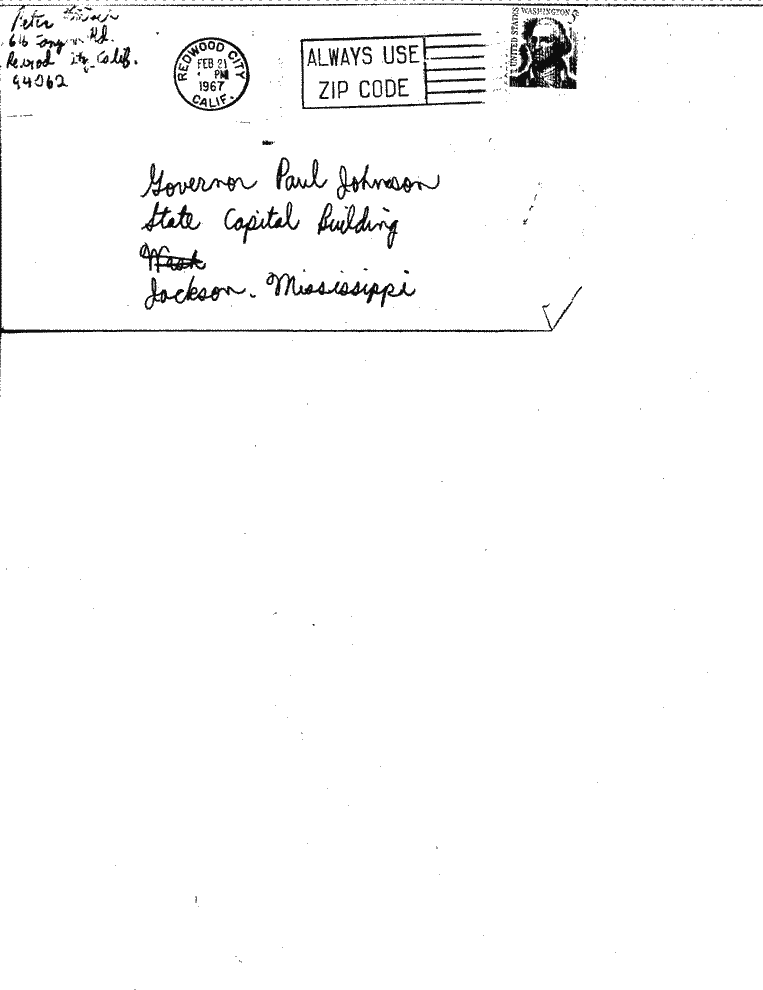 Peter
Rd.
Calif.
94062
REDWOOD CITY
FEB 21
PM
1967
CALIF.
ALWAYS USE
ZIP CODE
UNITED STATES
WASHINGTON 5
Governor Paul Johnson
State Capital Building
Wash
Jackson. Mississippi